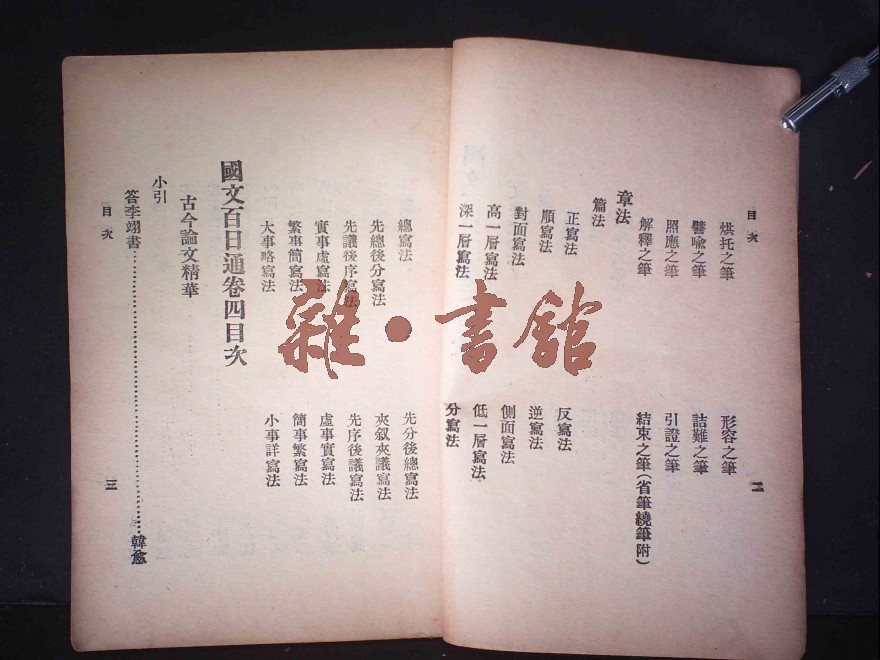 目次
烘托之筆　形容之筆
譬喩之筆　詰難之筆
照應之筆　引證之筆
解釋之筆　結束之筆(省筆繞筆附)
章法
篇法
正寫法　反寫法
順寫法　逆寫法
對面寫法　側面寫法
高一層寫法　低一層寫法
深一層寫法　分寫法
二
總寫法　先分後總寫法
先總後分寫法　夾敘夾議寫法
先議後序寫法　先序後議寫法
實事虛寫法　虛事實寫法
繁事簡寫法　簡事繁寫法
大事略寫法　小事詳寫法
國文百日通卷四目次
古今論文精華
小引
答李翊書……韓愈
目次
三
雜·書館